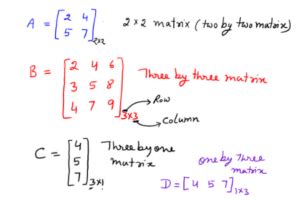 A = [2 4
5 7]2×2 2×2 matrix (two by two matrix)
B = [2 4 6
3 5 8
4 7 9]3×3 Three by three matrix
Row
Column
C = [4
5
7]3×1 Three by one
matrix
one by three
matrix
D = [4 5 7]1×3